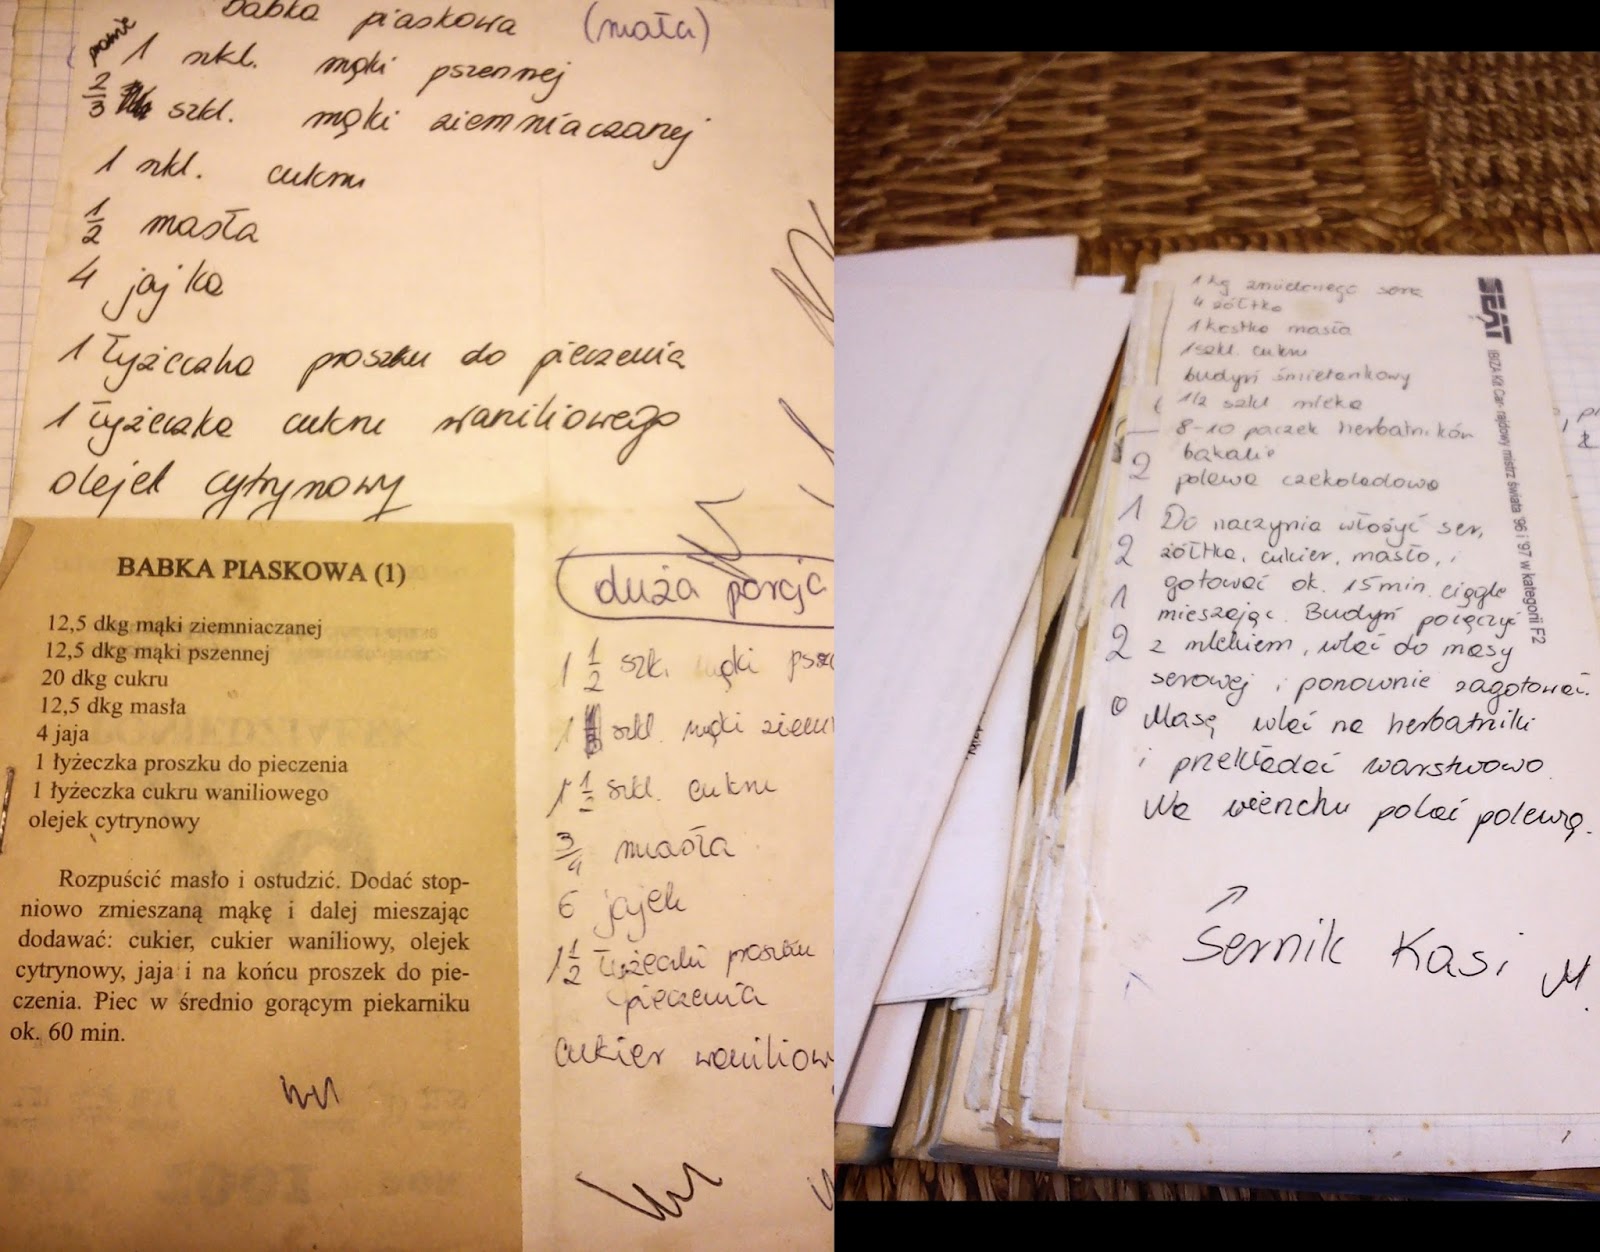 Babka piaskowa (mała)
prawie
1 szkl. mąki pszennej
2/3 szkl. mąki ziemniaczanej
1 szkl. cukru
1/2 masła
4 jajka
1 łyżeczka proszku do pieczenia
1 łyżeczka cukru waniliowego
olejek cytrynowy
BABKA PIASKOWA (1)
12,5 dkg mąki ziemniaczanej
12,5 dkg mąki pszennej
20 dkg cukru
12,5 dkg masła
4 jaja
1 łyżeczka proszku do pieczenia
1 łyżeczka cukru waniliowego
olejek cytrynowy
Rozpuścić masło i ostudzić. Dodać stop-
niowo zmieszaną mąkę i dalej mieszając
dodawać: cukier, cukier waniliowy, olejek
cytrynowy, jaja i na końcu proszek do pie-
czenia. Piec w średnio gorącym piekarniku
ok. 60 min.
duża porcja
1 1/2 szk. mąki psze
1 szkl. mąki ziem
1 1/2 szkl. cukru
3/4 masła
6 jajek
1 1/2 łyżeczki proszku
pieczenia
cukier waniliow
1 kg zmielonego sera
4 żółtka
1 kostka masła
1 szkl. cukru
budyń śmietankowy
1/2 szkl mleka
8-10 paczek herbatników
bakalie
polewa czekoladowa
Do naczynia włożyć ser,
żółtka, cukier, masło, i
gotować ok. 15 min. ciągle
mieszając. Budyń połączyć
z mlekiem, wlać do masy
serowej i ponownie zagotować.
Masę wlać na herbatniki
i przekładać warstwowo.
Na wierzchu polać polewą.
Sernik Kasi M.
SEAT
IBIZA Kit Car - rajdowy mistrz świata '96 i '97 w kategorii F2
2
1
2
1
2